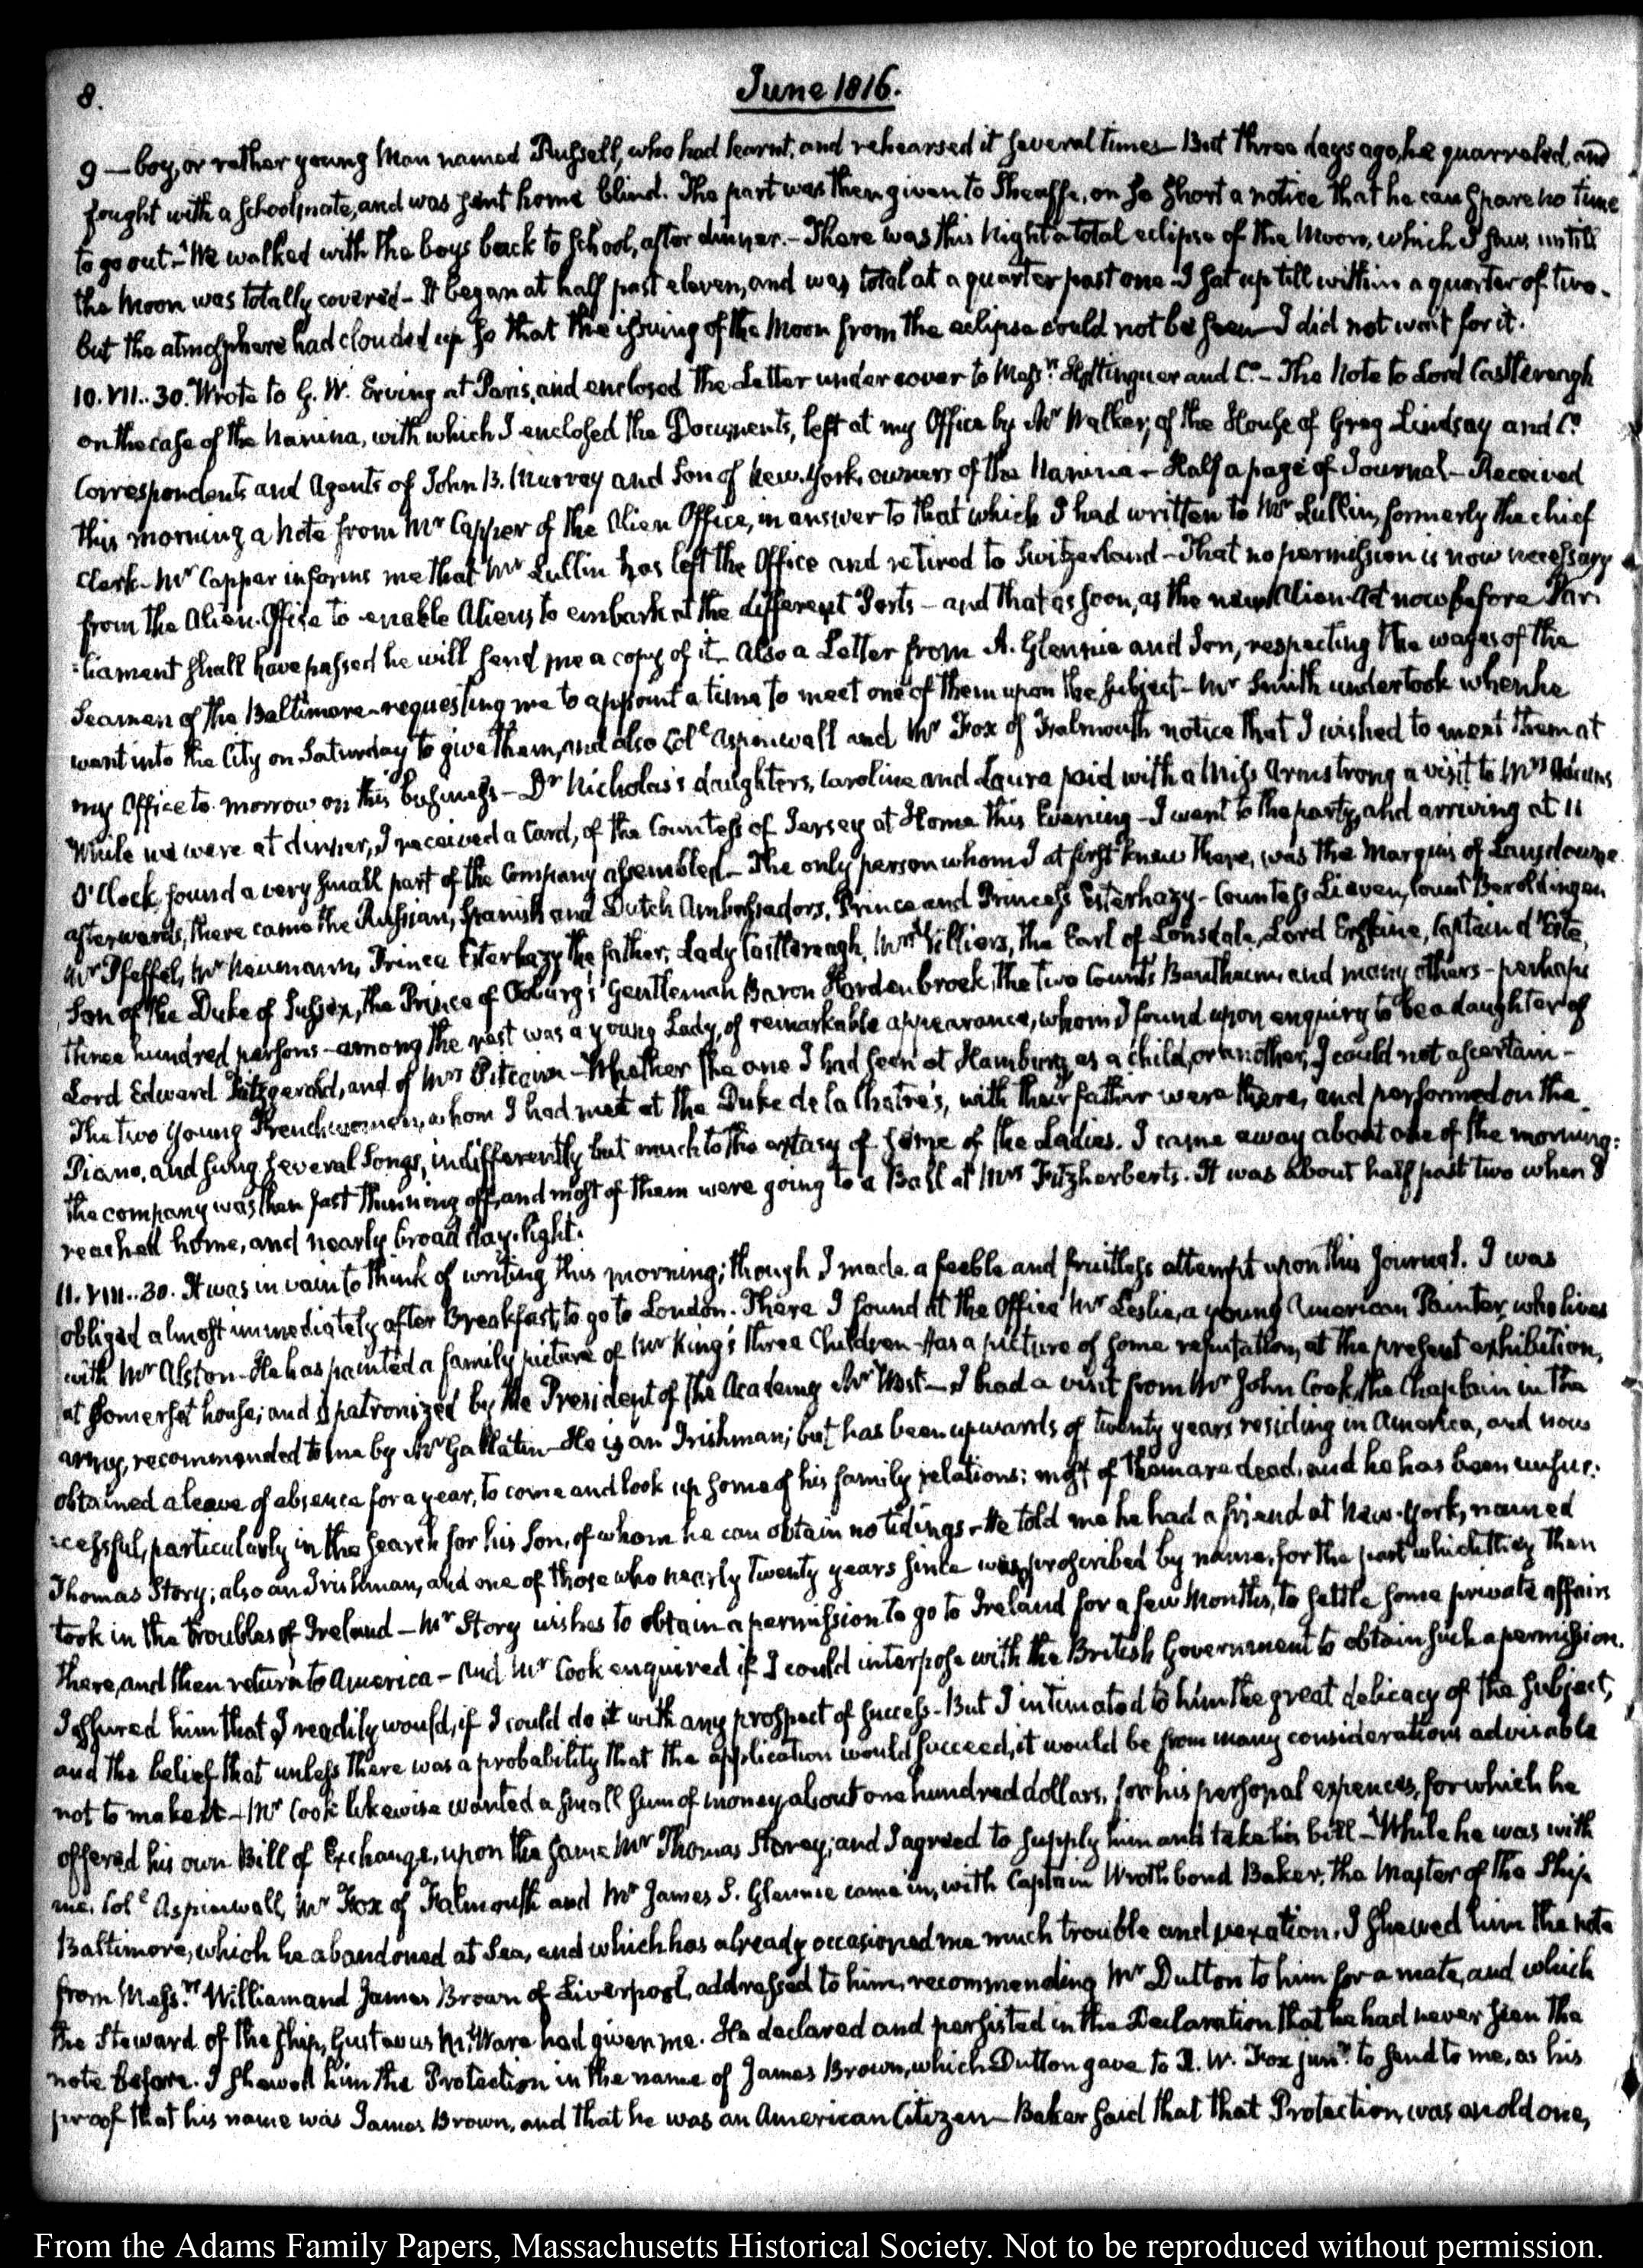 8.
June 1816.
9 — boy, or rather young Man named Russell, who had learnt, and rehearsed it several times — But three days ago, he quarreled, and
fought with a schoolmate, and was sent home blind. The part was then given to Sheaffe, on so short a notice that he can spare no time
to go out — We walked with the boys back to School, after dinner. — There was this Night a total eclipse of the Moon, which I saw untill
the Moon was totally covered — It began at half past eleven, and was total at a quarter past one — I sat up till within a quarter of two —
but the atmosphere had clouded up so that the issuing of the Moon from the eclipse could not be seen — I did not wait for it.
10. VII..30. Wrote to G. W. Erving at Paris, and enclosed the Letter under cover to Mess.rs Hottinguer and Co. — The Note to Lord Castlereagh
on the case of the Nanina, with which I enclosed the Documents, left at my Office by Mr Walker, of the House of Greg Lindsay and Co.
Correspondents and Agents of John B. Murray and Son of New-York, owners of the Nanina — Half a page of Journal — Received
this morning a Note from Mr Capper of the Alien Office, in answer to that which I had written to Mr Lullin, formerly the chief
Clerk — Mr Capper informs me that Mr Lullin has left the Office and retired to Switzerland — That no permission is now necessary
from the Alien-Office to enable Aliens to embark at the different Ports — and that as soon, as the new Alien-Act now before Par-
-liament shall have passed he will send me a copy of it — Also a Letter from A. Glennie and Son, respecting the wages of the
Seamen of the Baltimore — requesting me to appoint a time to meet one of them upon the subject — Mr Smith undertook when he
went into the City on Saturday to give them, and also Coll Aspinwall and Mr Fox of Falmouth notice that I wished to meet them at
my Office to-morrow on this business — Dr Nicholas's daughters, Caroline and Laura paid with a Miss Armstrong a visit to Mrs Adams
While we were at dinner, I received a Card, of the Countess of Jersey at Home this Evening — I went to the party, and arriving at 11
O'Clock, found a very small part of the Company assembled — The only person whom I at first knew there, was the Marquis of Lansdowne
afterwards, there came the Russian, Spanish and Dutch Ambassadors, Prince and Princess Esterhazy — Countess Lieven, Count Beroldingen
Mr Pfeffel, Mr Neumann, Prince Esterhazy the father, Lady Castlereagh, Mrs Villiers, the Earl of Lonsdale, Lord Erskine, Captain d'Este,
Son of the Duke of Sussex, the Prince of Coburg's Gentleman Baron Hardenbroek, the two Counts Bentheim, and many others — perhaps
three hundred persons — among the rest was a young Lady, of remarkable appearance, whom I found upon enquiry to be a daughter of
Lord Edward Fitzgerald, and of Mrs Pitcairn — Whether the one I had seen at Hamburg, as a child, or another, I could not ascertain —
The two young Frenchwomen, whom I had met at the Duke de la Chatre's, with their father were there, and performed on the
Piano, and sung several Songs, indifferently but much to the extasy of some of the Ladies. I came away about one of the morning:
the company was then fast thinning off, and most of them were going to a Ball at Mrs Fitzherbert's. It was about half past two when I
reached home, and nearly broad day-light.
11. VIII..30. It was in vain to think of writing this morning; though I made a feeble and fruitless attempt upon this Journal. I was
obliged almost immediately after Breakfast, to go to London. There I found at the Office Mr Leslie, a young American Painter, who lives
with Mr Alston — He has painted a family picture of Mr King's three Children — Has a picture of some reputation, at the present exhibition,
at Somerset house; and is patronized by the President of the Academy Mr West — I had a visit from Mr John Cook, the Chaplain in the
army, recommended to me by Mr Gallatin — He is an Irishman; but has been upwards of twenty years residing in America, and now
obtained a leave of absence for a year, to come and look up some of his family relations; most of them are dead, and he has been unsuc-
-cessful, particularly in the search for his Son, of whom he can obtain no tidings — He told me he had a friend at New-York, named
Thomas Story; also an Irishman, and one of those who nearly twenty years since was proscribed by name, for the part which they then
took in the troubles of Ireland — Mr Story wishes to obtain a permission to go to Ireland for a few Months, to settle some private affairs
there, and then return to America — And Mr Cook enquired if I could interpose with the British Government to obtain such a permission.
I assured him that I readily would, if I could do it with any prospect of success — But I intimated to him the great delicacy of the subject,
and the belief that unless there was a probability that the application would succeed, it would be from many considerations advisable
not to make it — Mr Cook likewise wanted a small sum of money, about one hundred dollars, for his personal expences, for which he
offered his own Bill of Exchange, upon the same Mr Thomas Storey; and I agreed to supply him and take his bill — While he was with
me, Coll Aspinwall, Mr Fox of Falmouth and Mr James S. Glennie came in, with Captain Wrothbond Baker, the Master of the Ship
Baltimore, which he abandoned at Sea, and which has already occasioned me much trouble and vexation. I shewed him the note
from Mess.rs William and James Brown of Liverpool, addressed to him, recommending Mr Dutton to him for a mate, and which
the Steward of the Ship, Gustavus Ware had given me. He declared and persisted in the Declaration that he had never seen the
note before. I shewed him the Protection in the name of James Brown, which Dutton gave to R. W. Fox junr. to send to me, as his
proof that his name was James Brown, and that he was an American Citizen — Baker said that that Protection, was an old one,
From the Adams Family Papers, Massachusetts Historical Society. Not to be reproduced without permission.